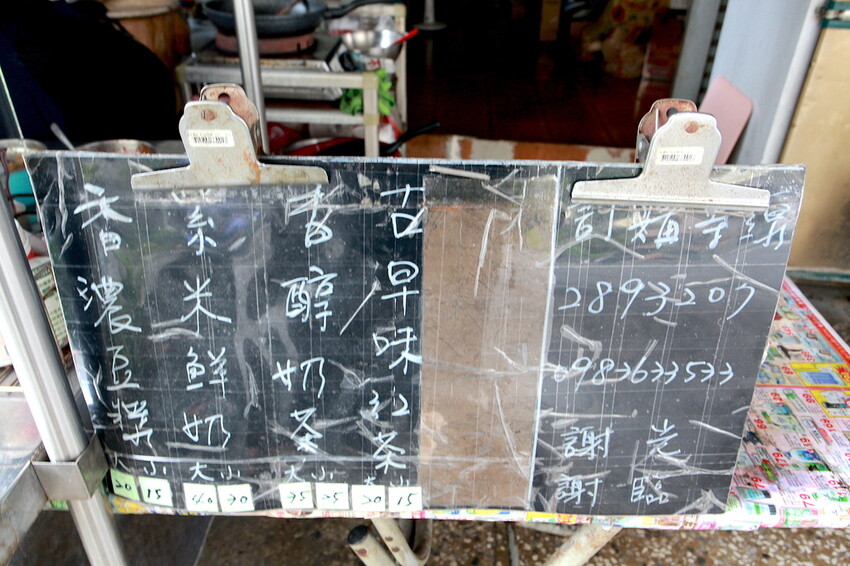 古早味红茶
大 小
20 15
香醇奶茶
大 小
35 25
紫米鮮奶
大 小
40 30
香濃豆漿
大 小
20 15
訂購專線
2893207
0983633533
謝謝
光臨